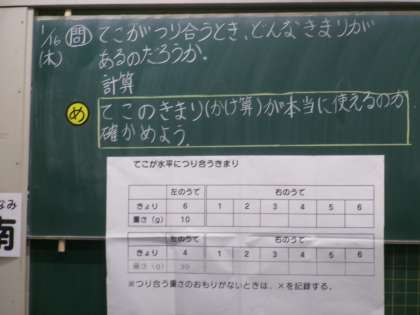 1/16 問 てこがつり合うとき、どんなきまりが
(木) あるのだろうか。
計算
め てこのきまり(かけ算)が本当に使えるのか
確かめよう。
てこが水平につり合うきまり
左のうで 右のうで
きょり 6 1 2 3 4 5 6
重さ(g) 10
左のうで 右のうで
きょり 4 1 2 3 4 5 6
重さ(g) 30
※つり合う重さのおもりがないときは、×を記録する。
なみ
南